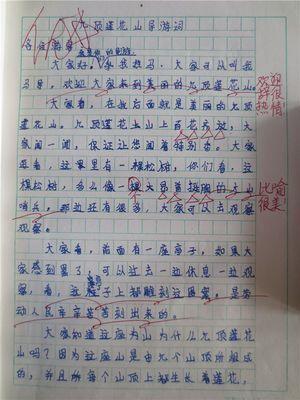 九顶莲花山导游词
各位游客
大家好，我我姓马，大家可以叫我
马导。欢迎大家来到美丽的九顶莲花山。
欢迎
辞很
热情！
大家看，在我后面就是美丽的九顶
莲花山。九顶莲花山上百花齐放，大
家闻一闻，保证让您闻着特别香。大家
再看，这里有一棵松树，你们看，这
棵松树，多么像一
哨兵，那边还有很多，大家可以去观察
比喻
很美！
观察。
大家看，前面有一座亭子，如果大
家感到累了，可以过去一边休息一边观
察，看，这亭子上都雕刻这图案。是劳
动人民辛辛苦苦刻出来的。
大家知道这座为山为什么九顶莲花
山吗？因为这座山是由九个山顶所组成
的，并且每个山顶上都生长着莲花，